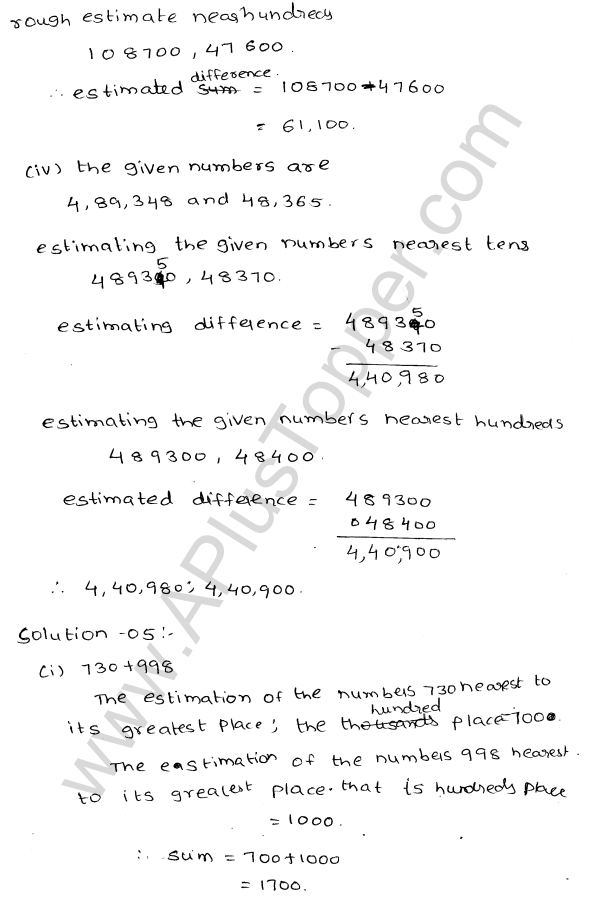 rough estimate neashundreds
108700, 47600.
∴ estimated difference = 108700 - 47600
= 61,100.
(iv) the given numbers are
4,89,348 and 48,365.
estimating the given numbers nearest tens
489350, 48370.
estimating difference = 489350
- 48370
4,40,980
estimating the given numbers nearest hundreds
489300, 48400.
estimated difference = 489300
048400
4,40,900
∴ 4,40,980; 4,40,900.
Solution -05:-
(i) 730+998
The estimation of the numbers 730 nearest to
its greatest place; the hundred place = 700.
The eastimation of the numbers 998 nearest.
to its greatest place. that is hundreds place
= 1000.
∴ sum = 700+1000
= 1700.
www.APlusTopper.com